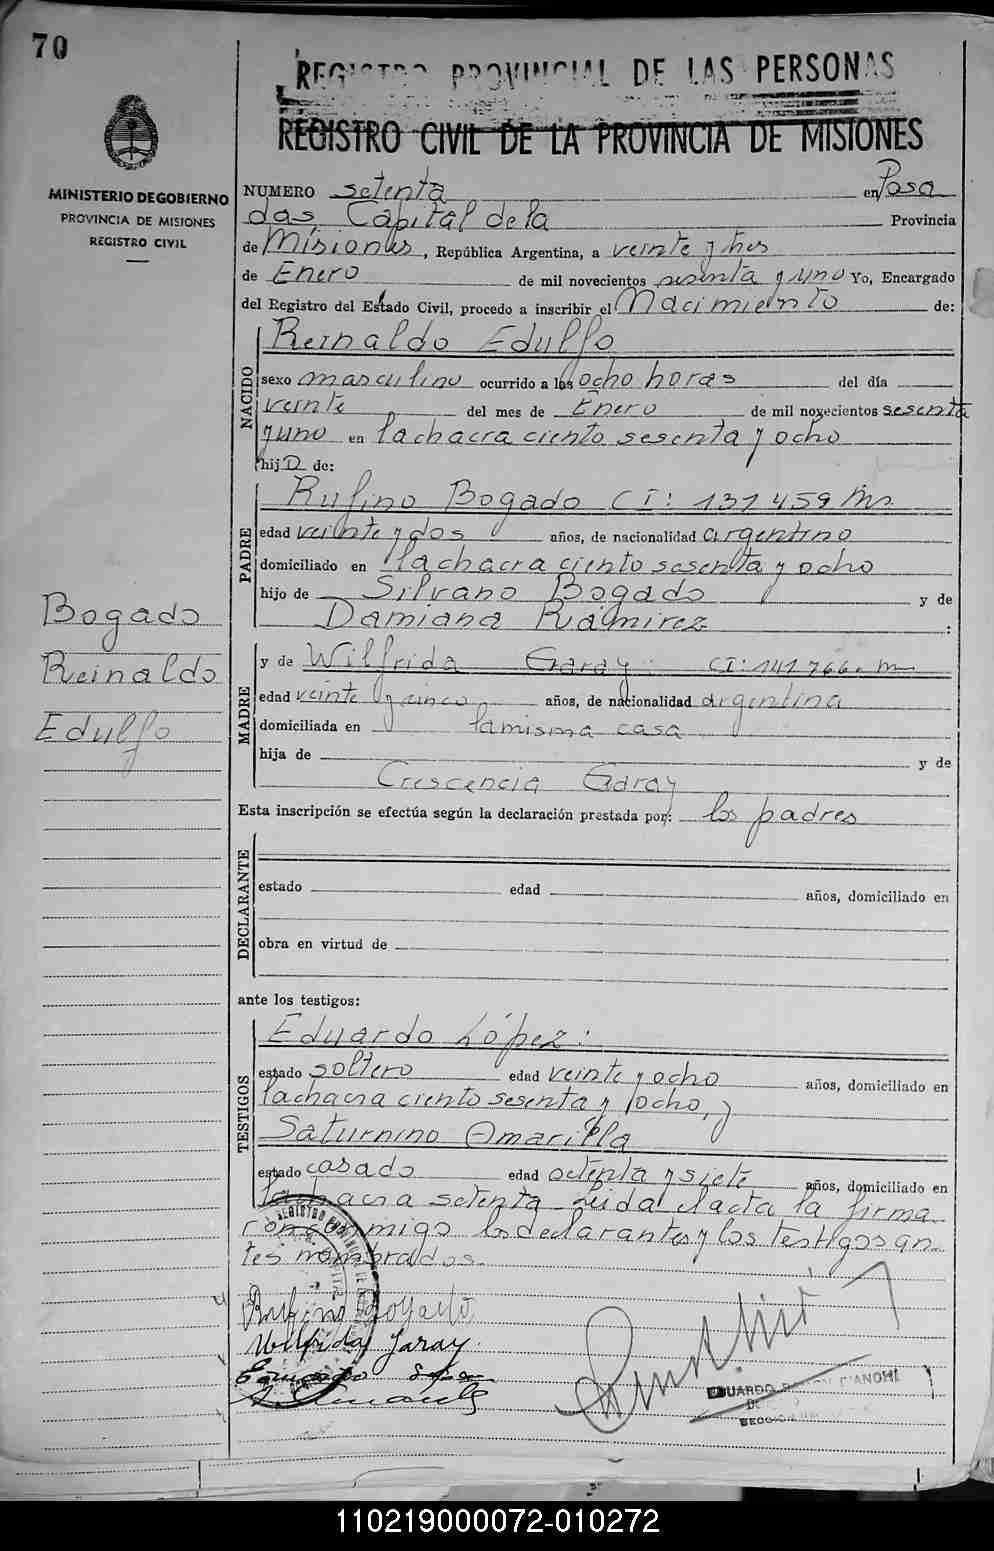 70
REGISTRO PROVINCIAL DE LAS PERSONAS
REGISTRO CIVIL DE LA PROVINCIA DE MISIONES
MINISTERIO DE GOBIERNO
PROVINCIA DE MISIONES
REGISTRO CIVIL
NUMERO setenta en Posa
das Capital de la Provincia
de Misiones, República Argentina, a veinte y tres
de Enero de mil novecientos sesenta y uno Yo, Encargado
del Registro del Estado Civil, procedo a inscribir el Nacimiento de:
NACIDO
Reinaldo Edulfo
sexo masculino ocurrido a las ocho horas del día
veinte del mes de Enero de mil novecientos sesenta
y uno en la chacra ciento sesenta y ocho
hijo de:
PADRE
Rufino Bogado CI: 131459 Mn
edad veinte y dos años, de nacionalidad argentino
domiciliado en la chacra ciento sesenta y ocho
hijo de Silvano Bogado y de
Damiana Ramirez :
MADRE
y de Wilfrida Garay CI: 141766 mn
edad veinte y cinco años, de nacionalidad argentina
domiciliada en la misma casa
hija de y de
Crescencia Garay
Esta inscripción se efectúa según la declaración prestada por: los padres
Bogado
Reinaldo
Edulfo
DECLARANTE
estado edad años, domiciliado en
obra en virtud de
ante los testigos:
TESTIGOS
Eduardo López:
estado soltero edad veinte y ocho años, domiciliado en
la chacra ciento sesenta y ocho, y
Saturnino Amarilla
estado casado edad octenta y siete años, domiciliado en
la chacra setenta Leida el acta la firma
ron conmigo los declarantes y los testigos an
tes nombrados.
Rufino Bogado
Wilfrida Garay
EDUARDO
110219000072-010272